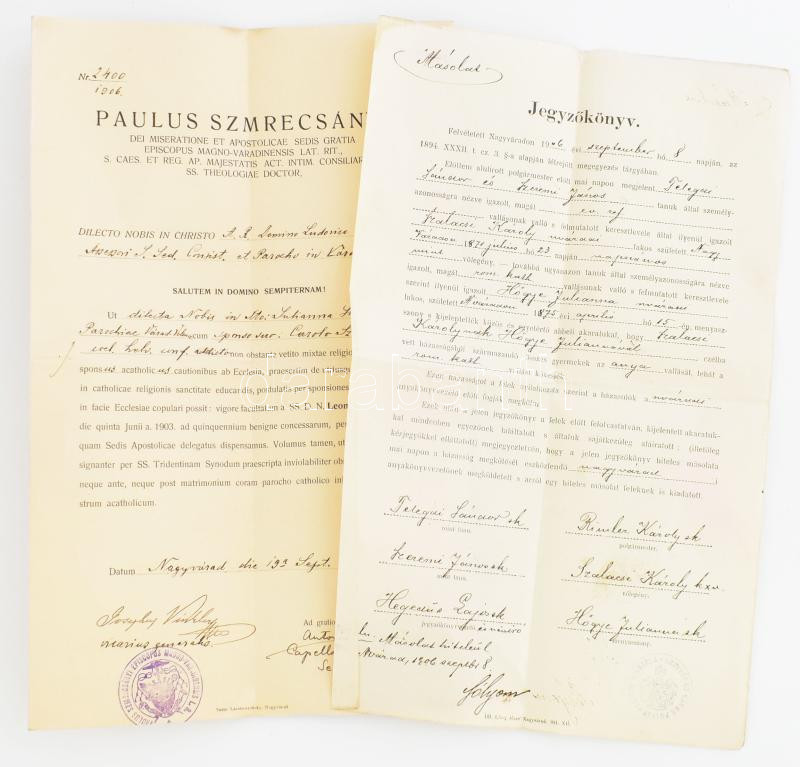 Nr. 2400
1906.
PAULUS SZMRECSÁN
DEI MISERATIONE ET APOSTOLICAE SEDIS GRATIA
EPISCOPUS MAGNO-VARADINENSIS LAT. RIT.,
S. CAES. ET REG. AP. MAJESTATIS ACT. INTIM. CONSILIAR
SS. THEOLOGIAE DOCTOR,
DILECTO NOBIS IN CHRISTO A. R. Domino Ludovico
Assessori S. Sed. Consist. et Parocho in Várad
SALUTEM IN DOMINO SEMPITERNAM!
Ut dilecta Nobis in Xto. Julianna
Parochiae cum sponso suo Carolo Sz
eccl. helv. conf. non obstante vetito mixtae religion
sponsus acatholicus cautionibus ab Ecclesia, praescitim de
in catholicae religionis sanctitate educardis, postulatis per sponsiones
in facie Ecclesiae copulari possit: vigore facultatem a SS. D. N. Leon
die quinta Junii a. 1903. ad quinquennium benigne concessarum, pe
quam Sedis Apostolicae delegatus dispensamus. Volumus tamen, ut
signanter per SS. Tridentinam Synodum praescripta inviolabiliter obs
neque ante, neque post matrimonium coram parocho catholico in
strum acatholicum.
Datum Nagyvárad, die 19a Sept.
Josephus Vinkler
vicarius generalis.
Ad gratio
Anto
Capell
Se
Másolat
Jegyzőkönyv.
Felvétetett Nagyváradon 1906 évi szeptember hó 8 napján, az
1894. XXXII. t. cz. 3. §-a alapján létrejött megegyezés tárgyában.
Előttem alulirott polgármester előtt mai napon megjelent Telegdi
Sándor és Szeremi János tanuk által személy-
azonosságra nézve igazolt, magát ev. ref.
vallásunak valló s felmutatott keresztlevele által ilyenül igazolt
Szalacsi Károly nváradi lakos született Nagy-
váradon 1871 julius hó 23 napján napszámos
mint vőlegény, — továbbá ugyanazon tanuk által személyazonosságára nézve
igazolt, magát rom. kath. vallásunak valló s felmutatott keresztlevele
szerint ilyenül igazolt Högye Julianna nváradi
lakos, született Nváradon 1875 évi április hó 15-én, menyasz-
szony s kijelentették közös és egyértelő abbeli akaratukat, hogy Szalacsi
Károlynak Högye Juliannával czélba
vett házasságából származandó összes gyermekek az anya vallását, tehát a
rom. kath. vallást kövessék.
Ezen házasságot a felek nyilatkozata szerint a házasulók a nváradi
anyakönyvvezető előtt fogják megkötni.
Ezek után a jelen jegyzőkönyv a felek előtt felolvastatván, kijelentett akaratuk-
kal mindenben egyezőnek találtatott s általuk sajátkezüleg aláiratott; (illetőleg
kézjegyükkel elláttatott) megjegyeztetvén, hogy a jelen jegyzőkönyv hiteles másolata
mai napon a házasság megkötését eszközlendő nagyváradi
anyakönyvvezetőnek megküldetett s arról egy hiteles másolat feleknek is kiadatott.
Telegdi Sándor sk
mint tanu.
Rimler Károly sk
polgármester.
Szeremi János sk
mint tanu.
Szalacsi Károly
vőlegény.
Hegedüs Lajos sk
Högye Julianna sk
menyasszony.
Másolat hiteléül
Nvárad, 1906 szeptb 8.
Sólyom